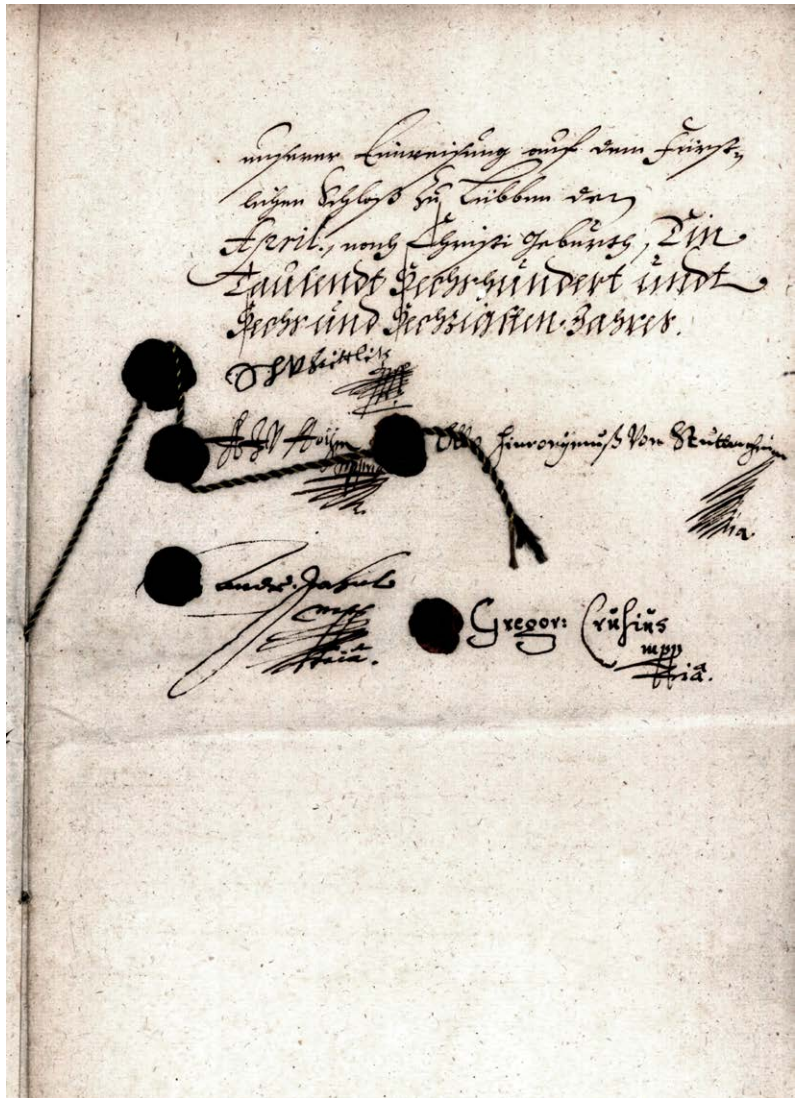 unserer Einweisung auf dem Fürst-
lichen Schloß zu Lübben den
April., nach Christi Geburth, Ein
Tausendt Sechshundert undt
Sechs und Sechzigsten Jahres.
Otto Hieronymuß Von Stutterheim
mpria.
Andr:
mpp
ria.
Gregor: Crusius
mpp
ria.